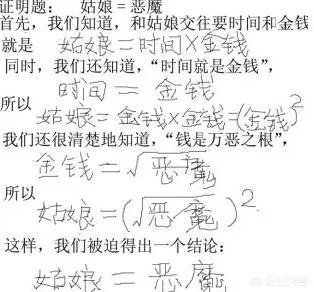 证明题： 姑娘=恶魔
首先，我们知道，和姑娘交往要时间和金钱
就是 姑娘=时间×金钱
同时，我们还知道，“时间就是金钱”，
时间 = 金钱
所以
姑娘=金钱×金钱=(金钱)²
我们还很清楚地知道，“钱是万恶之根”，
金钱=√恶魔
所以
姑娘=(√恶魔)²
这样，我们被迫得出一个结论：
姑娘=恶魔